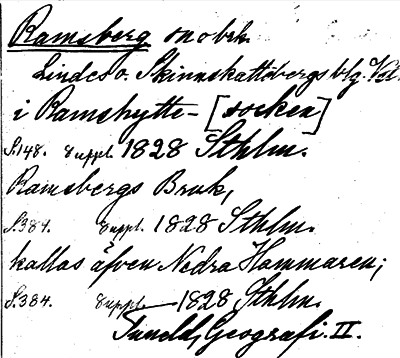 Ramsberg sn o brk
Lindes o. Skinnskattebergs blg. Vstm
i Ramshytte- [socken]
S.148. Suppl. 1828 Sthlm.
Ramsbergs Bruk,
S.384. Suppl. 1828 Sthlm.
kallas äfven Nedra Hammaren;
S.384. Suppl. 1828 Sthlm.
Tuneld, Geografi. II.